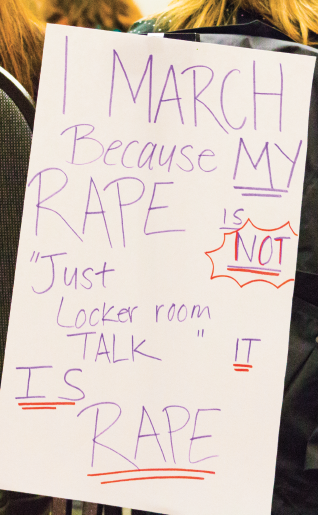 I MARCH
Because MY
RAPE IS
NOT
"Just
Locker room
TALK" IT
IS
RAPE